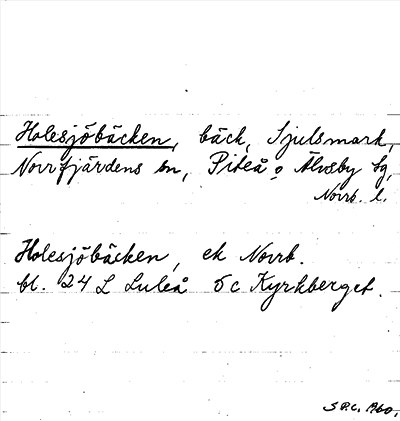 Holesjöbäcken, bäck, Sjulsmark,
Norrfjärdens sn, Piteå o Älvsby tg,
Norrb. l.
Holesjöbäcken, ek Norrb.
bl. 24 L Luleå 5c Kyrkberget.
1960.